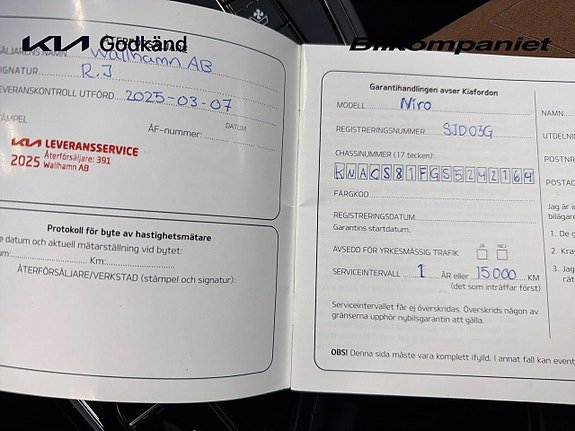 KIA Godkänd
Bilkompaniet
ÅTERFÖRSÄLJARE
SÄLJARENS NAMN Wallhamn AB
SIGNATUR R.J
LEVERANSKONTROLL UTFÖRD 2025-03-07
DATUM
STÄMPEL
ÅF-nummer:
KIA LEVERANSSERVICE
2025 Återförsäljare: 391
Wallhamn AB
Protokoll för byte av hastighetsmätare
e datum och aktuell mätarställning vid bytet:
um: Km:
ÅTERFÖRSÄLJARE/VERKSTAD (stämpel och signatur):
Garantihandlingen avser Kiafordon
MODELL Niro
REGISTRERINGSNUMMER SJD03G
CHASSINUMMER (17 tecken):
KNACS81FGS5242169
FÄRGKOD
REGISTRERINGSDATUM
Garantins startdatum.
JA NEJ
AVSEDD FÖR YRKESMÄSSIG TRAFIK
SERVICEINTERVALL 1 ÅR eller 15000 KM
(det som inträffar först)
Serviceintervallet får ej överskridas. Överskrids någon av
gränserna upphör nybilsgarantin att gälla.
OBS! Denna sida måste vara komplett ifylld. I annat fall kan event
NAMN
UTDELNI
POSTNR
POSTAD
Jag är in
bilägare
1. De g
2. Krav
3. Jag
rät